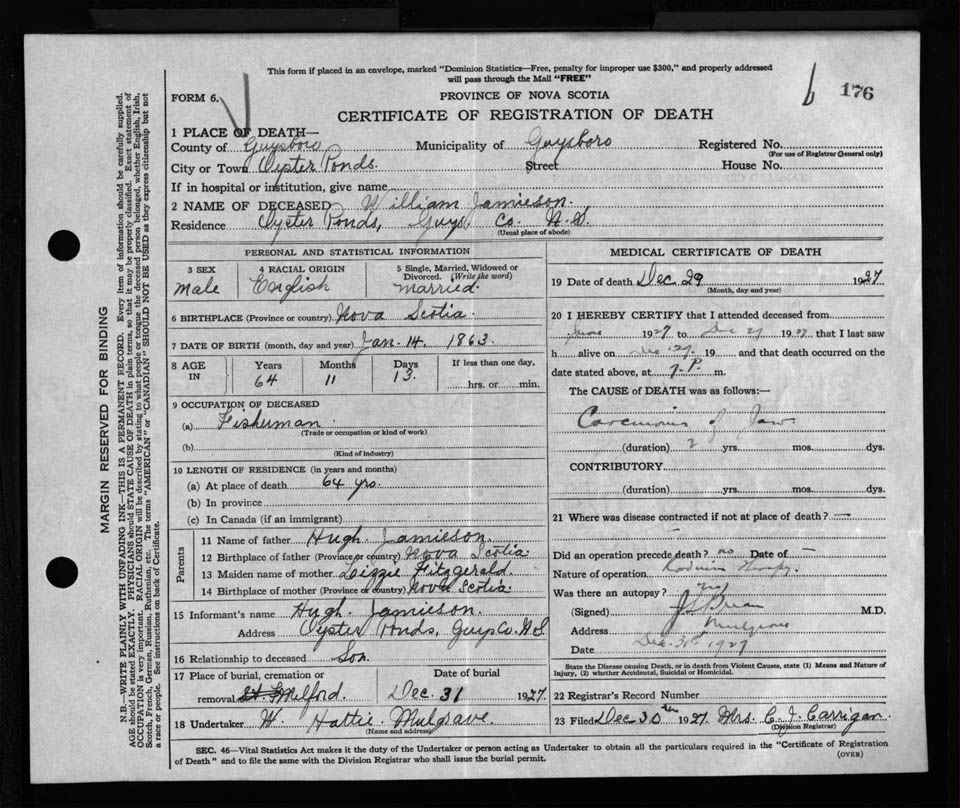 This form if placed in an envelope, marked "Dominion Statistics—Free, penalty for improper use $300," and properly addressed
will pass through the Mail "FREE"
176
FORM 6.
PROVINCE OF NOVA SCOTIA
CERTIFICATE OF REGISTRATION OF DEATH
1 PLACE OF DEATH—
County of Guysboro Municipality of Guysboro Registered No.
(For use of Registrar General only)
City or Town Oyster Ponds. Street House No.
If in hospital or institution, give name
2 NAME OF DECEASED William Jamieson.
Residence Oyster Ponds, Guys. Co. N.S.
(Usual place of abode)
PERSONAL AND STATISTICAL INFORMATION
3 SEX 4 RACIAL ORIGIN 5 Single, Married, Widowed or
Divorced. (Write the word)
Male English Married.
6 BIRTHPLACE (Province or country) Nova Scotia
7 DATE OF BIRTH (month, day and year) Jan. 14. 1863.
8 AGE IN Years Months Days If less than one day,
64 11 13. hrs. or min.
9 OCCUPATION OF DECEASED
(a) Fisherman
(Trade or occupation or kind of work)
(b)
(Kind of industry)
10 LENGTH OF RESIDENCE (in years and months)
(a) At place of death 64 yrs.
(b) In province
(c) In Canada (if an immigrant)
Parents
11 Name of father Hugh Jamieson.
12 Birthplace of father (Province or country) Nova Scotia
13 Maiden name of mother Lizzie Fitzgerald.
14 Birthplace of mother (Province or country) Nova Scotia
15 Informant's name Hugh Jamieson.
Address Oyster Ponds, Guys Co. N.S
16 Relationship to deceased Son.
17 Place of burial, cremation or Date of burial
removal Milford. Dec. 31 1927.
18 Undertaker W. Hattie Mulgrave.
(Name and address)
MEDICAL CERTIFICATE OF DEATH
19 Date of death Dec 29 1927
(Month, day and year)
20 I HEREBY CERTIFY that I attended deceased from
June 1927 to Dec 27 1927, that I last saw
h alive on Dec 27. 19 and that death occurred on the
date stated above, at 7. P. m.
The CAUSE of DEATH was as follows:—
Carcinoma of Jaw.
(duration) 2 yrs. mos. dys.
CONTRIBUTORY
(duration) yrs. mos. dys.
21 Where was disease contracted if not at place of death? —
Did an operation precede death? no Date of —
Nature of operation Radium Therapy.
Was there an autopsy? no
(Signed) M.D.
Address Mulgrave
Date Dec. 31st 1927
State the Disease causing Death, or in death from Violent Causes, state (1) Means and Nature of
Injury, (2) whether Accidental, Suicidal or Homicidal.
22 Registrar's Record Number
23 Filed Dec 30th 1927. Mrs. C. J. Carrigan.
(Division Registrar)
SEC. 46—Vital Statistics Act makes it the duty of the Undertaker or person acting as Undertaker to obtain all the particulars required in the "Certificate of Registration
of Death" and to file the same with the Division Registrar who shall issue the burial permit.
(OVER)
MARGIN RESERVED FOR BINDING
N.B.—WRITE PLAINLY WITH UNFADING INK—THIS IS A PERMANENT RECORD. Every item of information should be carefully supplied.
AGE should be stated EXACTLY. PHYSICIANS should STATE CAUSE OF DEATH in plain terms, so that it may be properly classified. Exact statement of
OCCUPATION is very important. RACIAL ORIGIN will be described by stating to what people or tongue the deceased person belonged, whether English, Irish,
Scotch, French, German, Russian, Ruthenian, etc. The terms "AMERICAN" or "CANADIAN" SHOULD NOT BE USED as they express citizenship but not
a race or people. See instructions on back of Certificate.